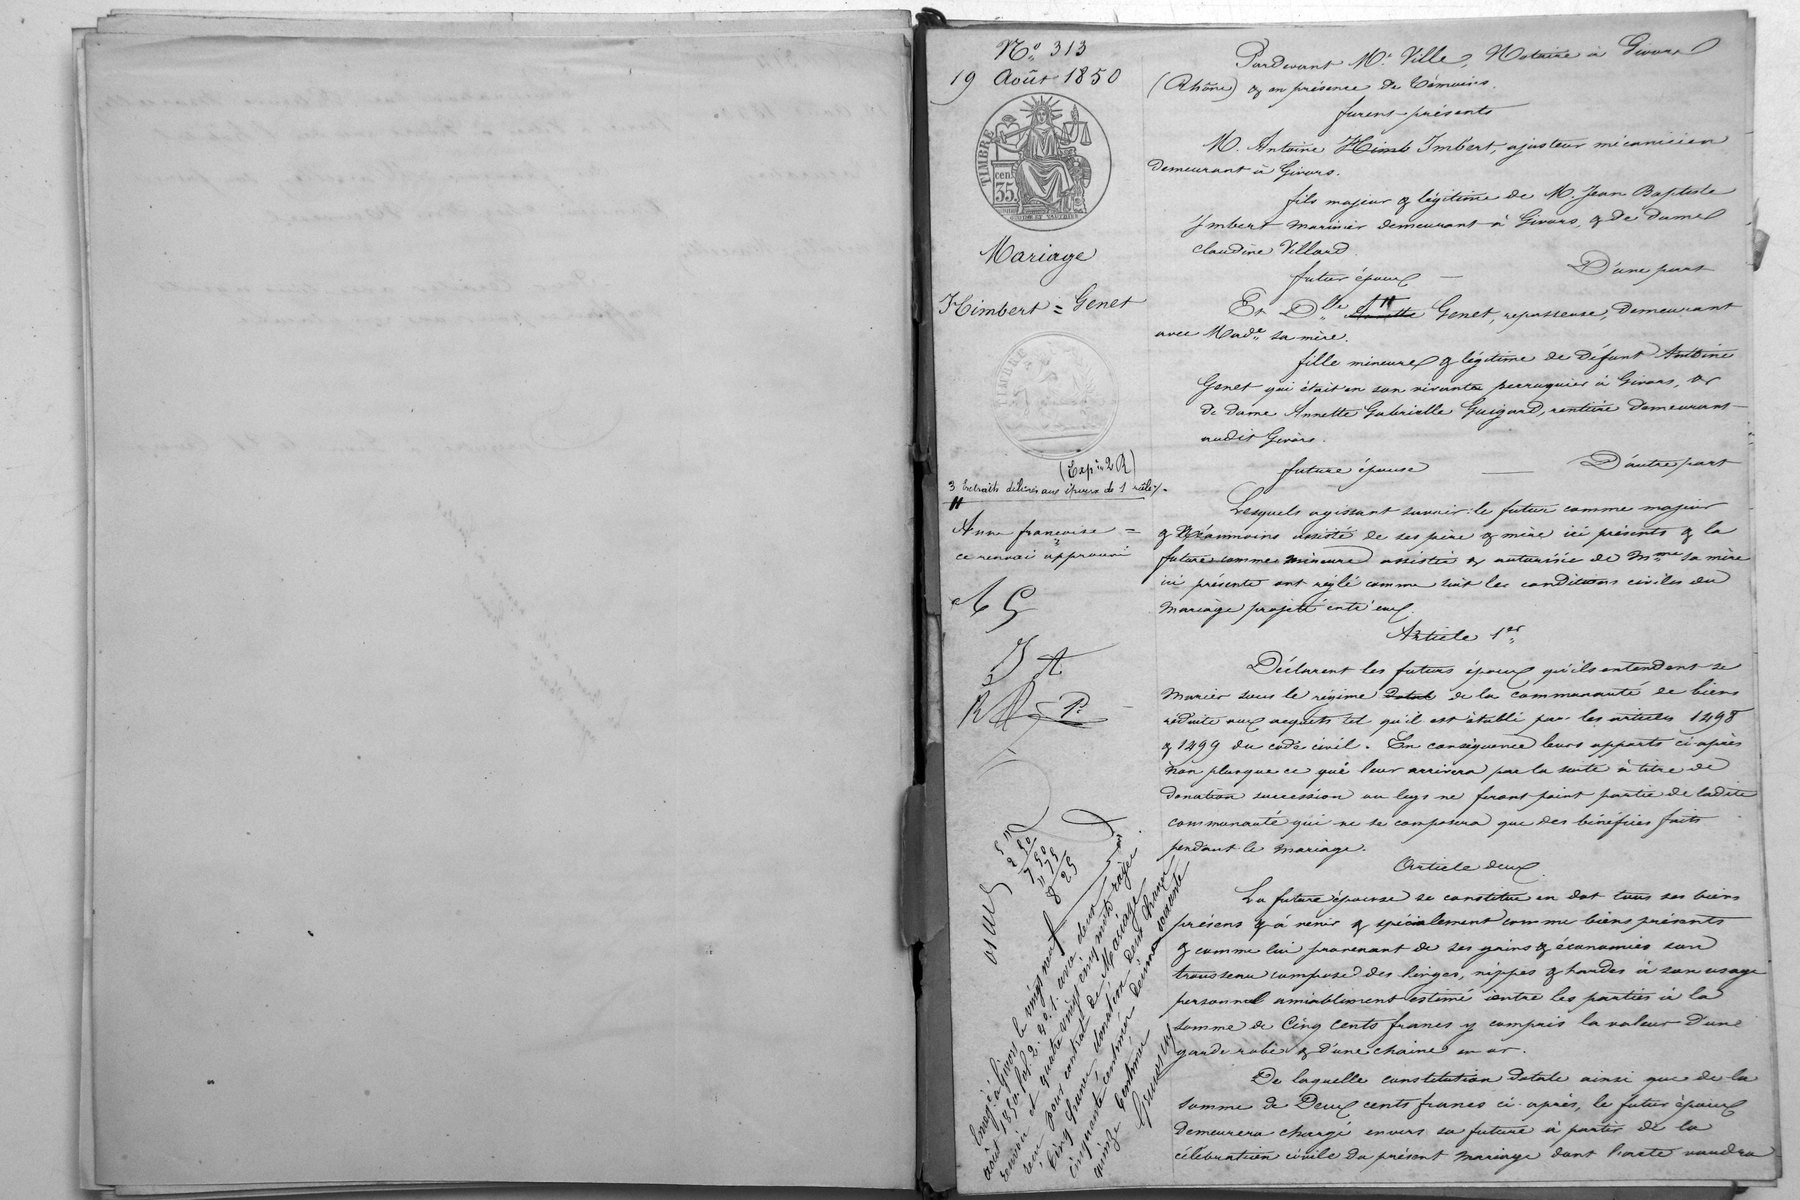 N° 313
19 Août 1850
TIMBRE
cen.
35.
Mariage
Himbert = Genet
TIMBRE
(Exp.on 2 R)
3 Extraits délivrés aux époux de 1 rôle
Anne françoise =
ce renvoi approuvé
A G
J A
Pardevant Me Ville, Notaire à Givors
(Rhône) & en présence de Témoins.
furent présents
M. Antoine Himb Imbert, ajusteur mécanicien
demeurant à Givors.
fils majeur & légitime de M. Jean Baptiste
Imbert marinier demeurant à Givors, & de dame
claudine Villard.
futur époux — D'une part
Et Dlle Annette Genet, repasseuse, demeurant
avec Made sa mère.
fille mineure & légitime de Défunt Antoine
Genet qui était en son vivant perruquier à Givors, &
de dame Annette Gabrielle Guigard, rentière demeurant
audit Givors.
future épouse — D'autre part
Lesquels agissant savoir: le futur comme majeur
& Néanmoins assisté de ses père & mère ici présents & la
future comme mineure assistée & autorisée de Mme sa mère
ici présente ont réglé comme suit les conditions civiles du
mariage projeté entr'eux.
Article 1er
Déclarent les futurs époux qu'ils entendent se
marier sous le régime dotal de la communauté de biens
réduite aux acquêts tel qu'il est établi par les articles 1498
& 1499 du code civil. En conséquence leurs apports ci-après
non plus que ce qui leur arrivera par la suite à titre de
donation succession ou legs ne feront point partie de ladite
communauté qui ne se composera que des bénéfices faits
pendant le mariage.
Article deux
La future épouse se constitue en dot tous ses biens
présens & à venir & spécialement comme biens présents
& comme lui provenant de ses gains & économies son
trousseau composé des linges, nippes & hardes à son usage
personnel amiablement estimé entre les parties à la
somme de Cinq cents francs y compris la valeur d'une
garde robe & d'une chaine en or.
De laquelle constitution dotale ainsi que de la
somme de Deux cents francs ci-après, le futur époux
demeurera chargé envers sa future à partir de la
célébration civile du présent mariage dont l'acte vaudra
5 "
2 50
7 50
" 75
8 25
Enregé à Givors le vingt neuf
août 1850, fol. 2. avec deux
renvois et quatre vingt cinq mots rayés.
reçu pour contrat de Mariage
Cinq francs donation deux francs
cinquante centimes décime soixante
quinze centimes